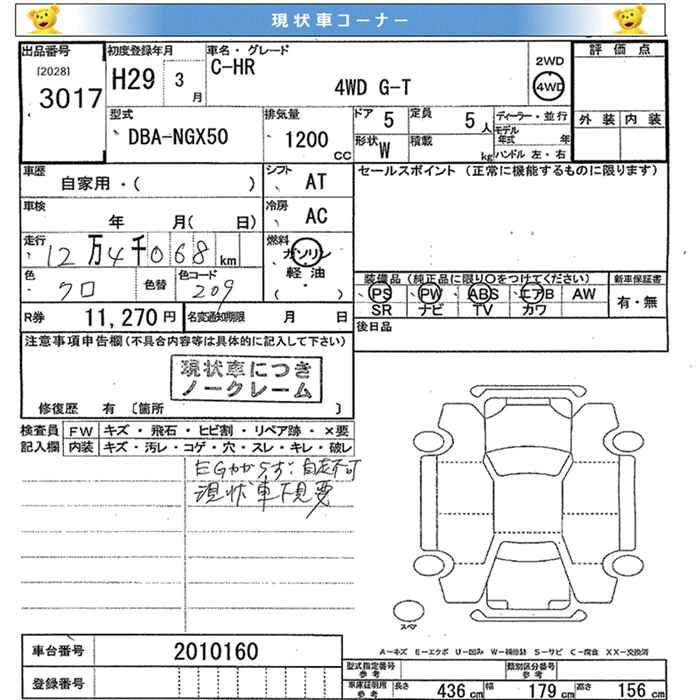 現状車コーナー
出品番号 初度登録年月 車名・グレード 評価点
[2028] 3017 H29 3月 C-HR 4WD G-T 2WD 4WD
外装 内装
型式 排気量 ドア 5 定員 5人 ディーラー・並行
DBA-NGX50 1200cc 形状 W 積載 kg モデル年式 年 ハンドル 左・右
車歴 シフト セールスポイント (正常に機能するものに限ります)
自家用・( ) AT
車検 年 月( 日) 冷房 AC
走行 12万4千068km 燃料 ガソリン 軽油 ( )
色 クロ 色替 色コード 209
装備品 (純正品に限り〇をつけてください) 新車保証書
PS PW ABS エアB AW 有・無
SR ナビ TV カワ
R券 11,270円 名変通知期限 月 日 後日品
注意事項申告欄(不具合内容等は具体的に記入して下さい)
現状車につき
ノークレーム
修復歴 有 〔箇所 〕
検査員 FW キズ・飛石・ヒビ割・リペア跡・×要
記入欄 内装 キズ・汚レ・コゲ・穴・スレ・キレ・破レ
EGかからず:自走不可
現状車下見要
スペア
A-キズ E-エクボ U-凹み W-補修跡 S-サビ C-腐食 XX-交換済
車台番号 2010160
登録番号
型式指定番号 参考 類別区分番号 参考
車庫証明用 参考 長さ 436 cm 幅 179 cm 高さ 156 cm